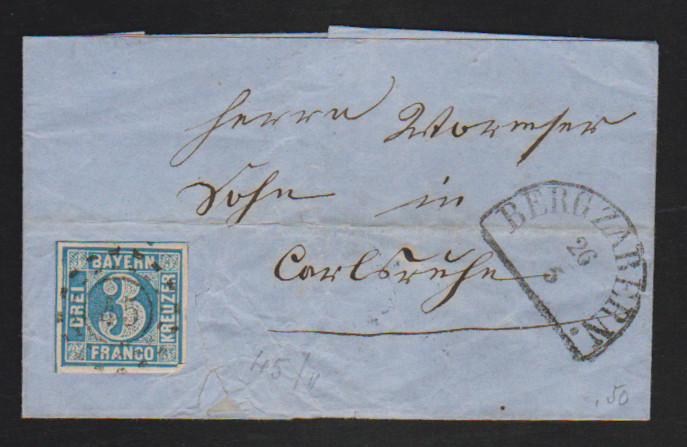 Herrn Wormser
Sohn in
Carlsruhe
BERGZABERN
26
5
BAYERN
DREI
3
KREUZER
FRANCO
45/
.50